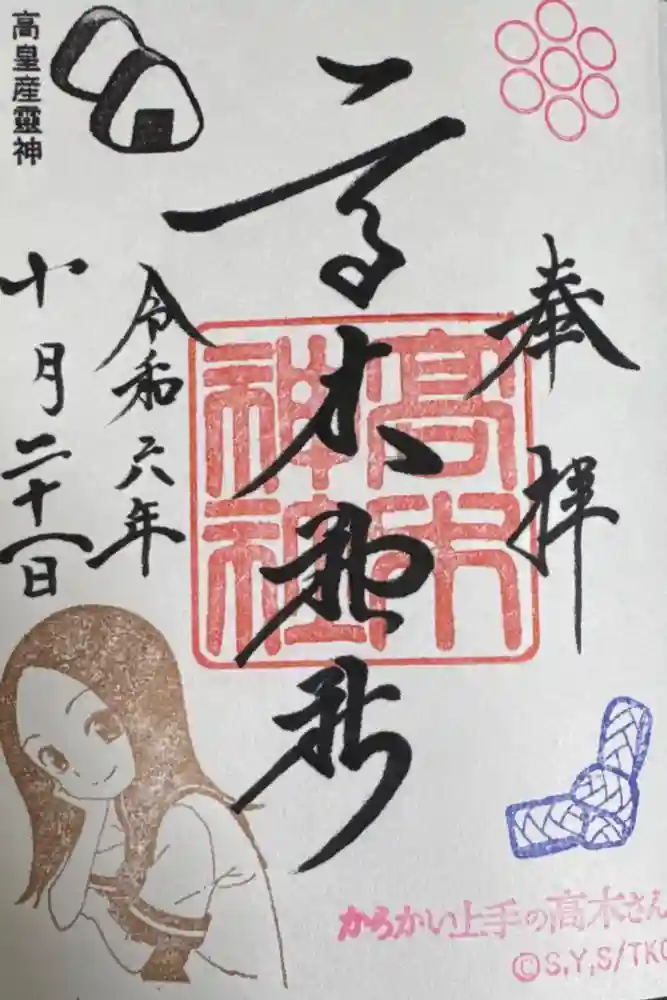 奉拝
高木神社
高木
神社
令和六年
十月二十八日
高皇産靈神
からかい上手の高木さん
©S,Y,S/TKC